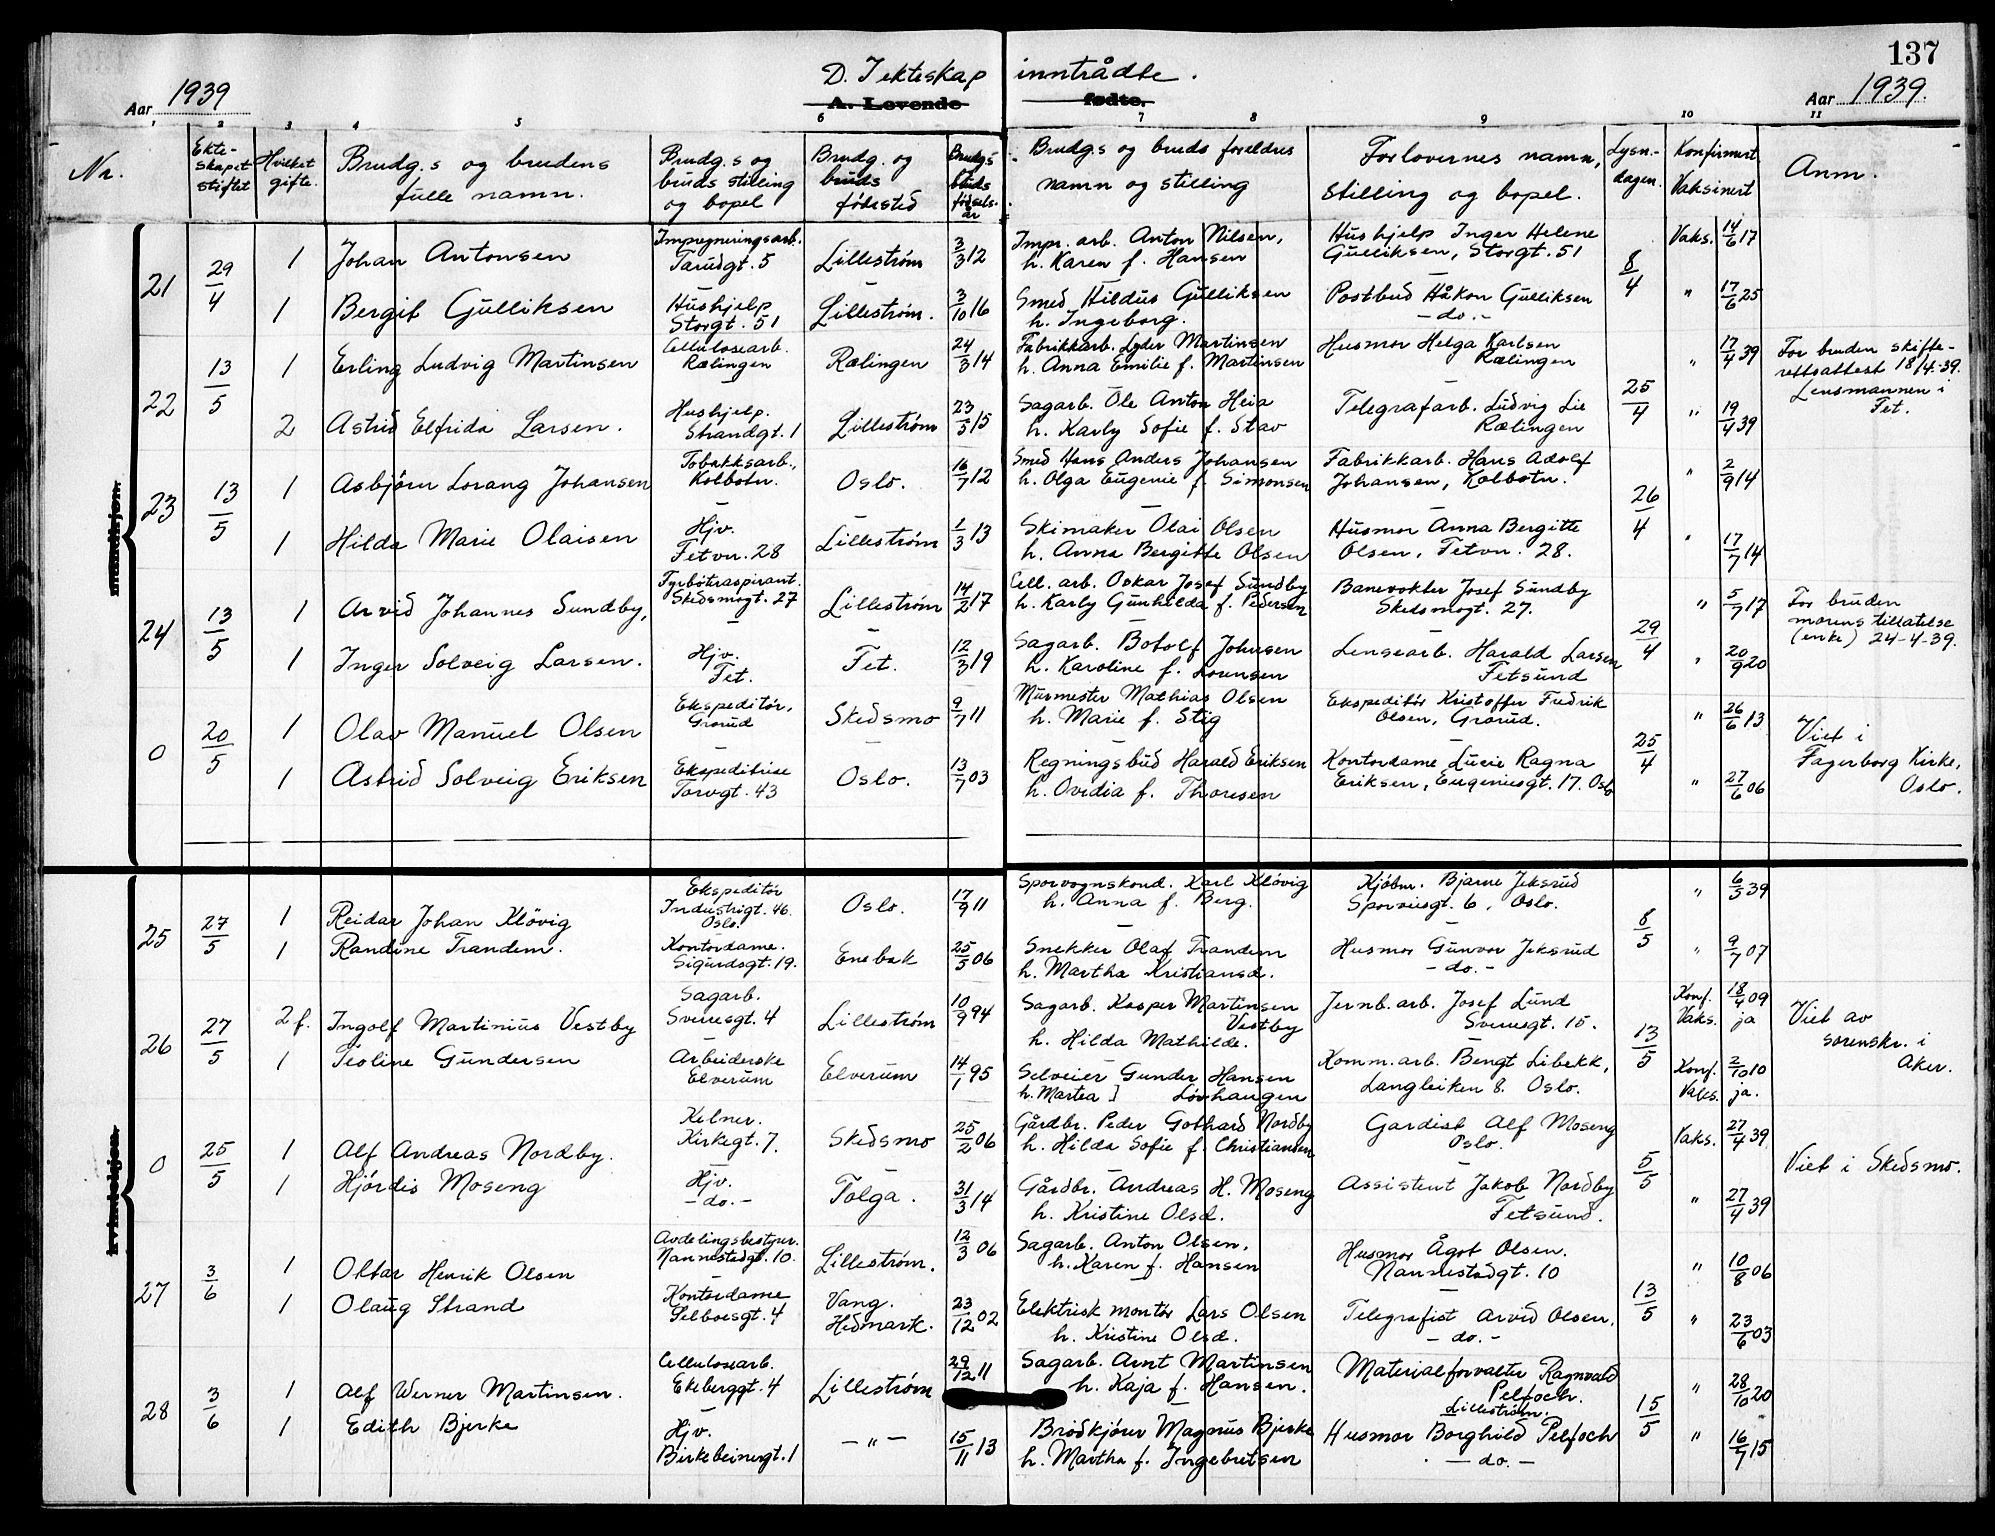 137
D. I ekteskap inntrådte.
Aar 1939
A. Levende fødte.
Aar 1939.
1 2 3 4 5 6 7 8 9 10 11
Nr.
Ekte-
skapet
stiftet
Hvilket
gifte.
Brudg.s og brudens
fulle namn.
Brudg.s og
bruds stilling
og bopel
Brudg. og
bruds
fødested
Brudg.s
bruds
fødsels-
år
Brudg.s og bruds foreldres
namn og stilling
Forlovernes namn,
stilling og bopel.
Lysn.-
dagen.
Konfirmert
Vaksinert
Anm.
mandkjøn.
21 29/4
1 Johan Antonsen Impregneringsarb. Tarudgt. 5 Lillestrøm 3/3 12 Impr. arb. Anton Nilsen, h. Karen f. Hansen Hushjelp Inger Helene Gulliksen, Storgt. 51 8/4 Vaks. 14/6 17
1 Bergit Gulliksen Hushjelp Storgt. 51 Lillestrøm. 3/10 16 Smed Hildus Gulliksen h. Ingeborg. Postbud Håkon Gulliksen -do.- " 17/6 25
22 13/5
1 Erling Ludvig Martinsen Cellulosearb. Rælingen Rælingen 24/3 14 Fabrikkarb. Lyder Martinsen h. Anna Emilie f. Martinsen Husmor Helga Karlsen Rælingen 25/4 " 17/4 39 For bruden skifte-
rettsattest 18/4-39.
Lensmannen i
Fet.
2 Astrid Elfrida Larsen. Hushjelp. Strandgt. 1 Lillestrøm 23/5 15 Sagarb. Ole Anton Heia h. Karly Sofie f. Stav Telegrafarb. Ludvig Lie Rælingen " 19/4 39
23 13/5
1 Asbjørn Lorang Johansen Tobakksarb., Kolbotn. Oslo. 16/7 12 Smed Hans Anders Johansen h. Olga Eugenie f. Simonsen Fabrikkarb. Hans Adolf Johansen, Kolbotn. 26/4 " 2/9 14
1 Hilda Marie Olaisen Hjv. Fetvn. 28 Lillestrøm 1/3 13 Skimaker Olai Olsen h. Anna Bergitte Olsen Husmor Anna Bergitte Olsen, Fetvn. 28. " 17/7 14
24 13/5
1 Arvid Johannes Sundby, Fyrbøteraspirant. Skedsmogt. 27 Lillestrøm 14/2 17 Cell. arb. Oskar Josef Sundby h. Karly Gunhilda f. Pedersen Banevokter Josef Sundby Skedsmogt. 27. 29/4 " 5/7 17 For bruden
morens tillatelse
(enke) 24-4-39.
1 Inger Solveig Larsen. Hjv. Fet. Fet. 12/3 19 Sagarb. Botolf Johnsen h. Karoline f. Lorensen Lensearb. Harald Larsen Fetsund " 20/9 20
0 20/5
1 Olav Manuel Olsen Ekspeditør, Grorud Skedsmo 9/7 11 Murmester Mathias Olsen h. Marie f. Stig Ekspeditør Kristoffer Fredrik Olsen, Grorud. 25/4 " 26/6 13 Viet i
Fagerborg Kirke,
Oslo.
1 Astrid Solveig Eriksen Ekspeditrise Torvgt. 43 Oslo. 13/7 03 Regningsbud Harald Eriksen h. Ovidia f. Thoresen Kontordame Lucie Ragna Eriksen, Eugeniesgt. 17. Oslo " 27/6 06
kvindekjøn.
25 27/5
1 Reidar Johan Kløvig Ekspeditør Industrigt. 46. Oslo. Oslo. 17/9 11 Sporvognskond. Karl Kløvig h. Anna f. Berg. Kjøbm. Bjarne Jeksrud Sporveisgt. 6, Oslo. 8/5 " 6/5 39
1 Randine Trandem. Kontordame. Sigurdsgt. 19. Enebak 25/5 06 Snekker Olaf Trandem h. Martha Kristiansd. Husmor Gunvor Jeksrud -do.- " 9/7 07
26 27/5
2 f. Ingolf Martinius Vestby Sagarb. Sverresgt. 4 Lillestrøm 10/9 94 Sagarb. Kasper Martinsen Vestby h. Hilda Mathilde. Jernb. arb. Josef Lund Sverresgt. 15. 13/5 Konf. 18/4 09 Vaks. ja Viet av
sorenskr. i
Aker.
1 Teoline Gundersen Arbeiderske Elverum Elverum 14/1 95 Selveier Gunder Hansen h. Martea ] Løvhaugen Komm. arb. Bengt Libekk, Langleiken 8. Oslo. Konf. 2/10 10 Vaks. ja.
0 25/5
1 Alf Andreas Nordby. Kelner. Kirkegt. 7. Skedsmo 25/2 06 Gårdbr. Peder Gothard Nordby h. Hilda Sofie f. Christiansen Gardist Alf Moseng Oslo. 5/5 Vaks. 27/4 39 Viet i Skedsmo.
1 Hjørdis Moseng Hjv. -do.- Tolga. 31/3 14 Gårdbr. Andreas H. Moseng h. Kristine Olsd. Assistent Jakob Nordby Fetsund. " 27/4 39
27 3/6
1 Ottar Henrik Olsen Avdelingsbestyrer. Nannestadgt. 10. Lillestrøm. 12/3 06 Sagarb. Anton Olsen, h. Karen f. Hansen Husmor Ågot Olsen. Nannestadgt. 10 13/5 " 10/8 06
1 Olaug Strand Kontordame Selboesgt. 4 Vang. Hedmark. 23/12 02 Elektrisk montør Lars Olsen h. Kristine Olsd. Telegrafist Arvid Olsen. -do.- " 23/6 03
28 3/6
1 Alf Werner Martinsen. Cellulosearb. Ekeberggt. 4 Lillestrøm 29/12 11 Sagarb. Arnt Martinsen h. Kaja f. Hansen. Materialforvalter Ragnvald Pelfoch. Lillestrøm. 15/5 " 28/10 20
1 Edith Bjerke Hjv. Birkebeinergt. 1 -"- 15/11 13 Brødkjører Magnus Bjerke h. Martha f. Ingebretsen Husmor Borghild Pelfoch -do.- " 16/7 15